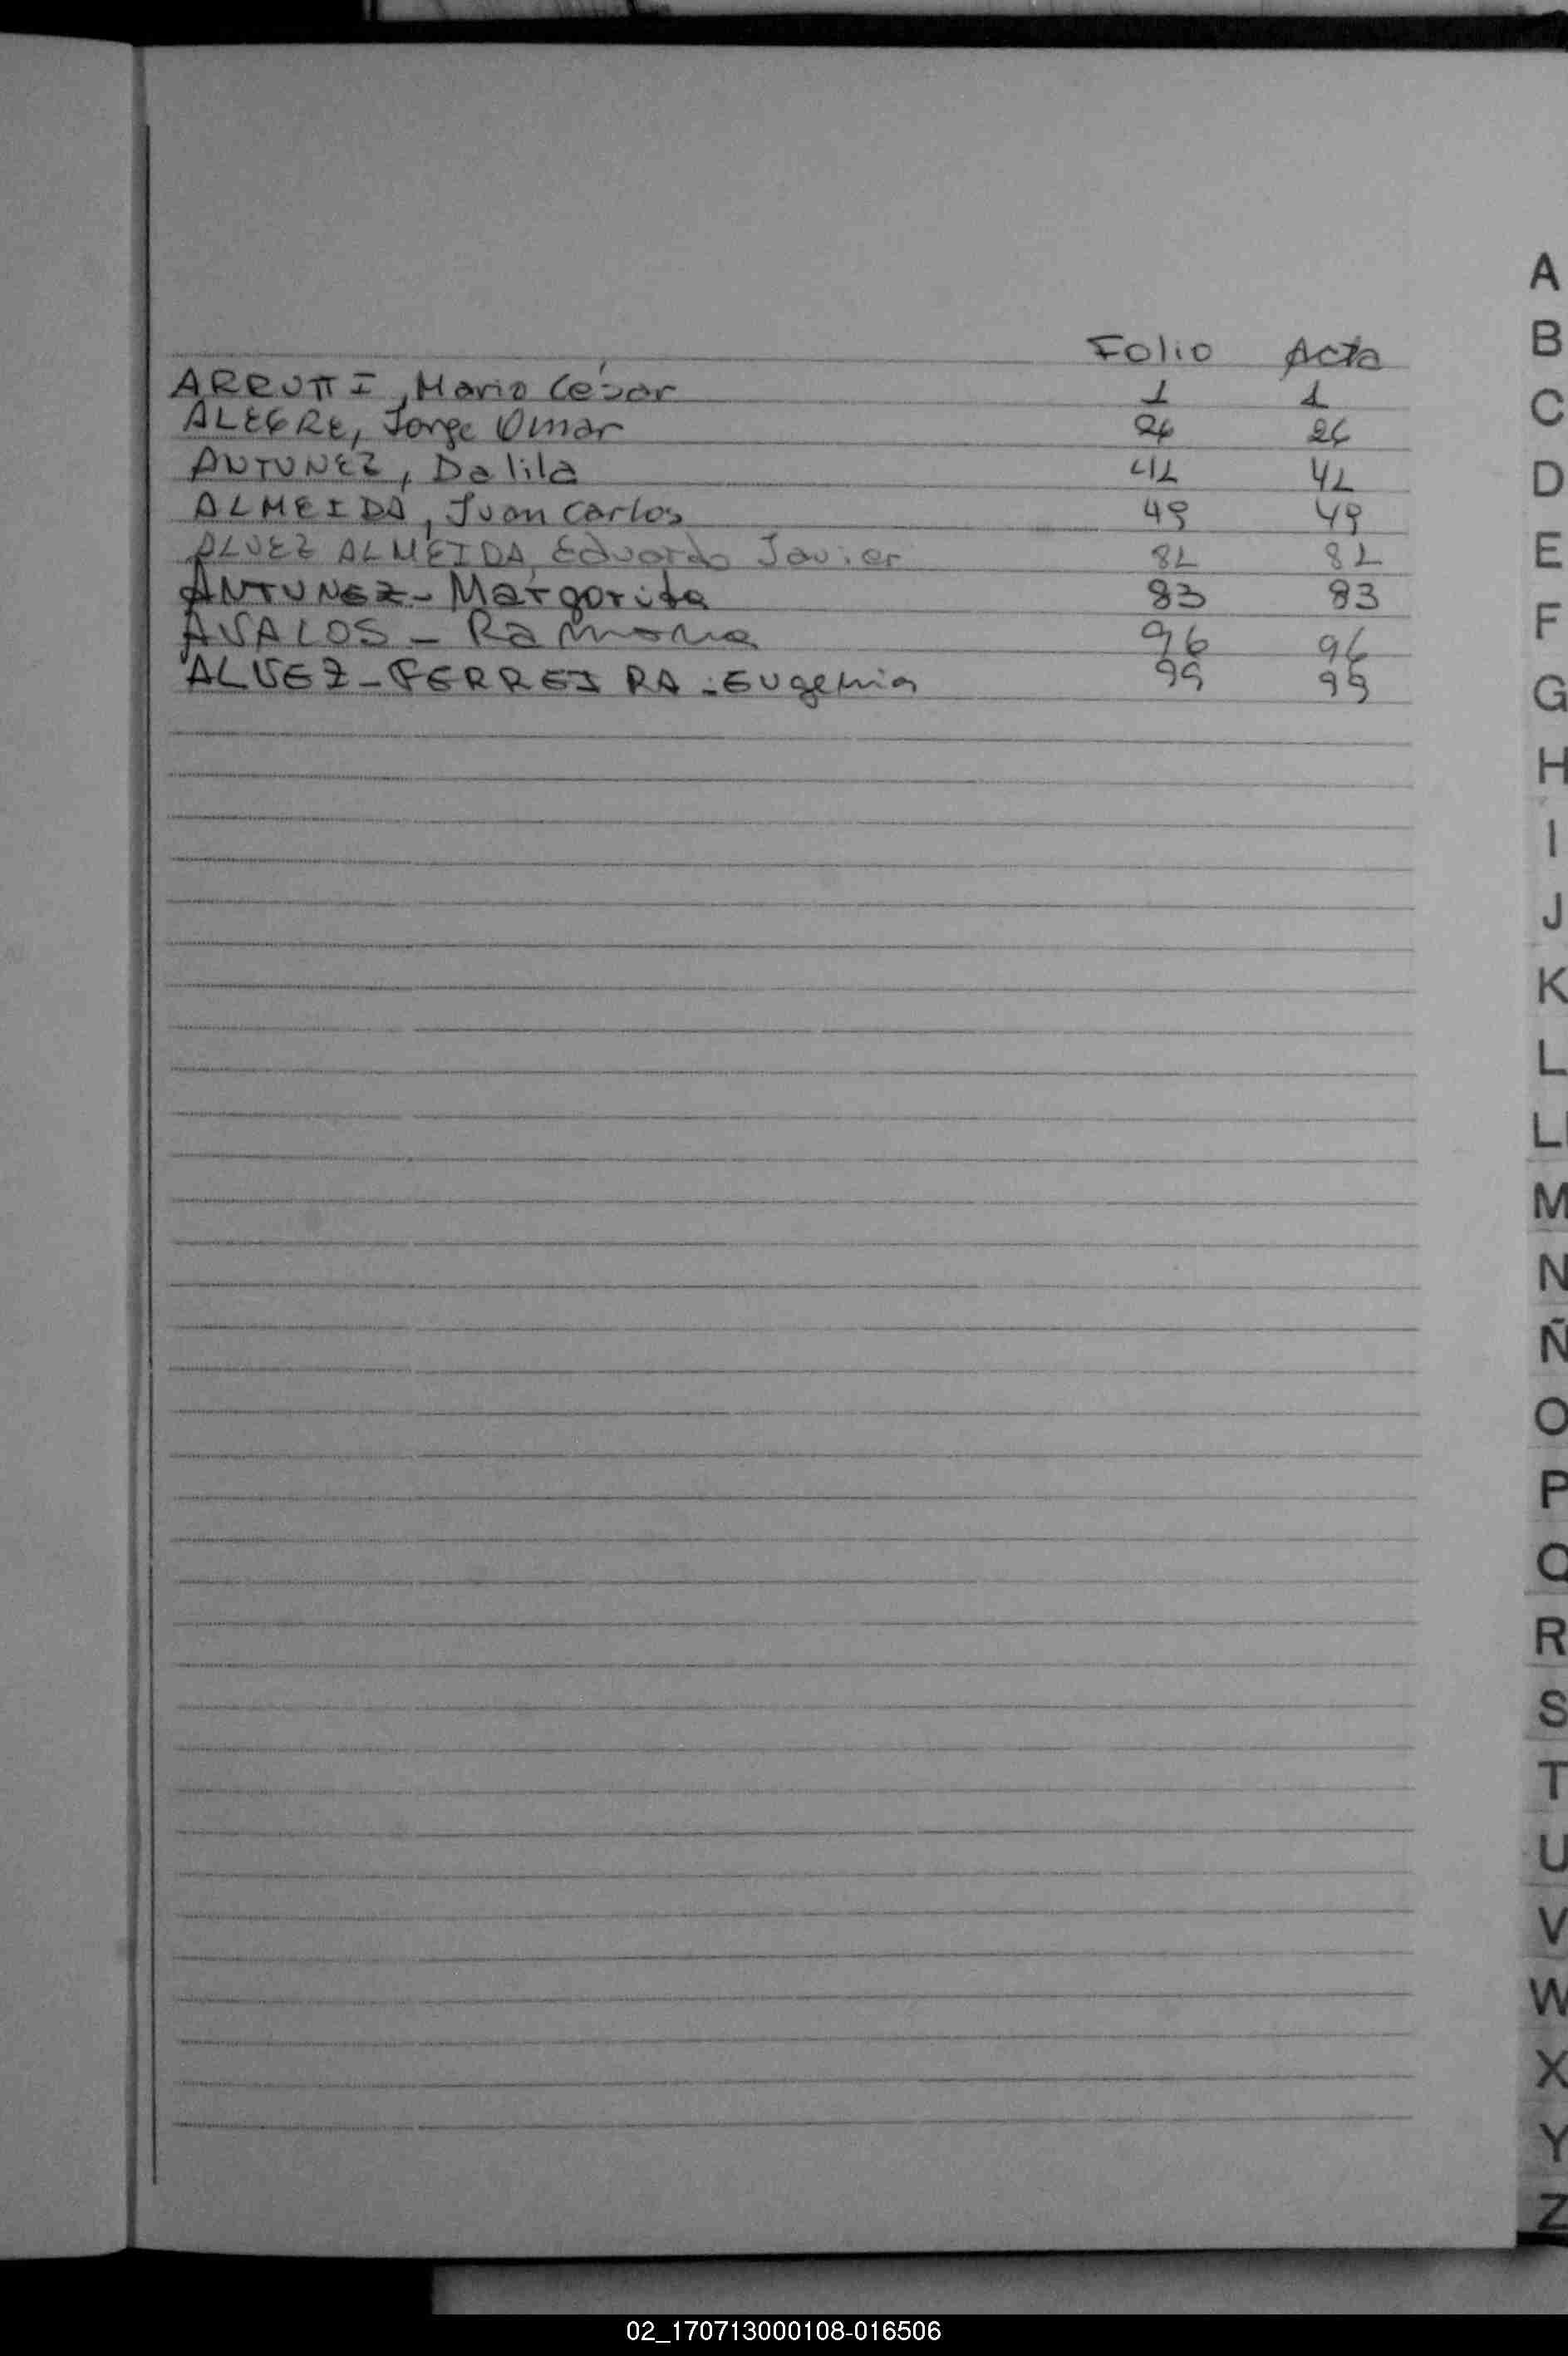 Folio Acta
ARRUTTI, Mario César 1 1
ALEGRE, Jorge Omar 26 26
ANTUNEZ, Dalila 42 42
ALMEIDA, Juan Carlos 49 49
ALVEZ ALMEIDA, Eduardo Javier 82 82
ANTUNEZ - Margarita 83 83
AVALOS - Ramona 96 96
ALVEZ - FERREIRA - Eugenia 99 99
A
B
C
D
E
F
G
H
I
J
K
L
Ll
M
N
Ñ
O
P
Q
R
S
T
U
V
W
X
Y
Z
02_170713000108-016506